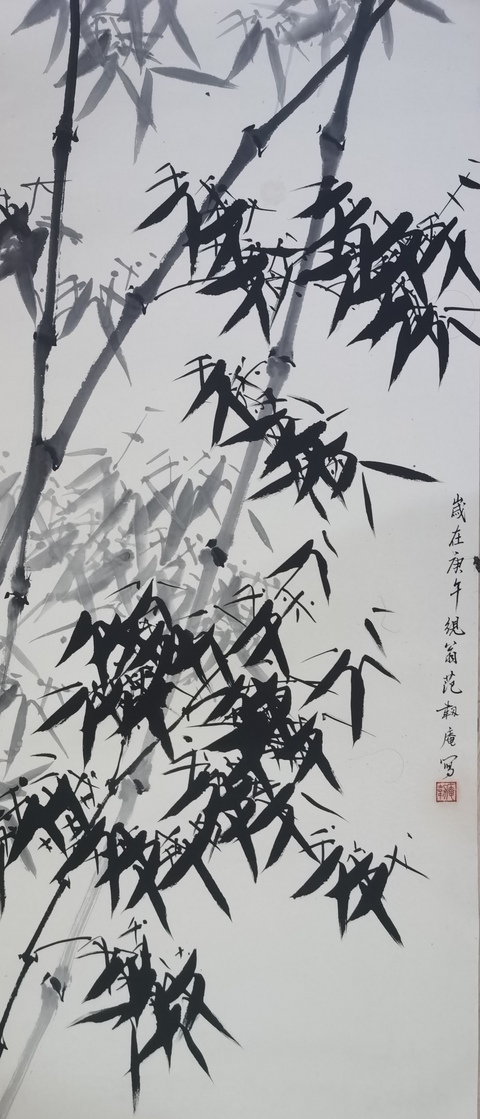 歲在庚午緄翁范韌庵寫